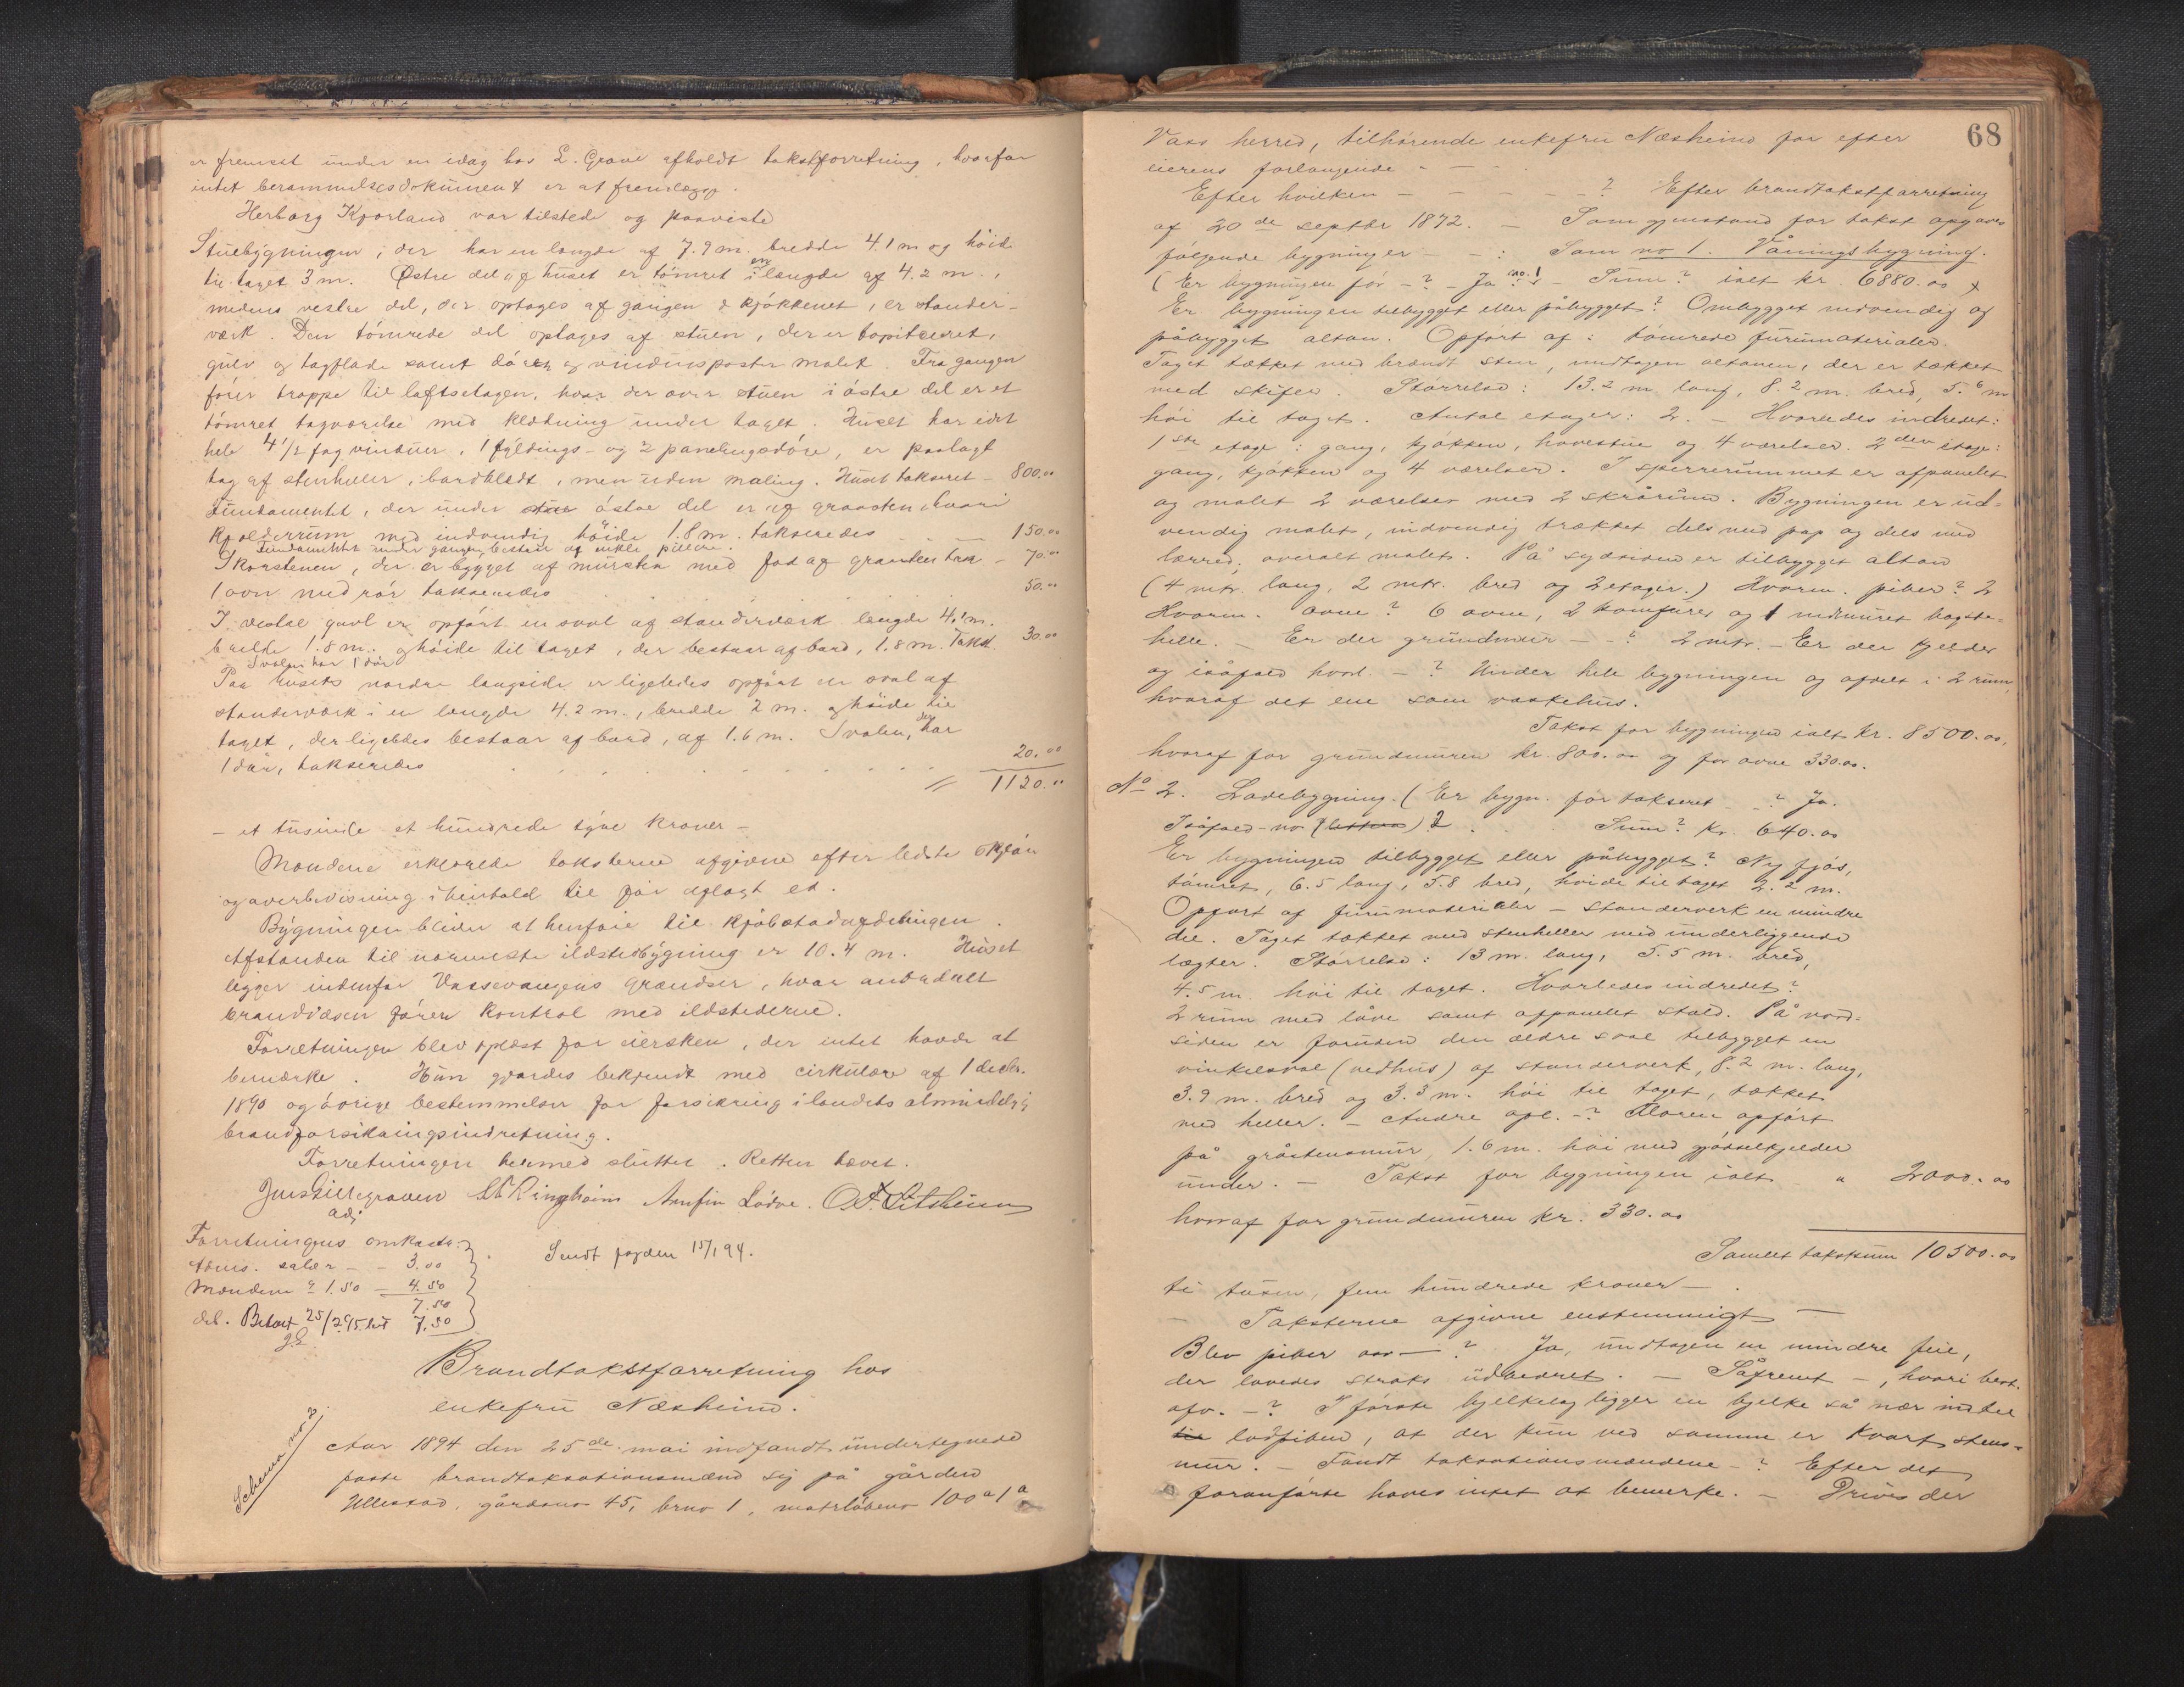 er fremsat under en idag hos L. Grove afholdt takstforretning, hvorfor
intet berammelsesdokument er at fremlægge.
Herborg Kjorland var tilstede og paaviste
Stuebygningen, der har en længde af 7.9 m. bredde 4.1 m og høide
til taget 3 m. Østre del af huset er tømret i en længde af 4.2 m.,
medens vestre del, der optages af gangen & kjøkkenet, er stander-
værk. Den tømrede del optages af stuen, der er tapitseret,
gulv og tagflade samt dører og vinduesposter malet. Fra gangen
fører trappe til loftsetagen, hvor der over stuen i østre del er et
tømret tagværelse med klædning under taget. Huset har idet
hele 4 1/2 fag vinduer, 1 fyldings- og 2 panelingsdøre, er paalagt
tag af stenheller, bordklædt, men uden maling. Huset takseret - 800.00
Fundamentet, der under østre del er af graasten, hvori
Kjelderrum med indvendig høide 1.8 m. takseredes 150.00
Fundamentet under gangen bestaar af enkle pillere.
Skorstenen, der er bygget af mursten med fod af graasten - 70.00
1 ovn med rør takseredes 50.00
I vestre gavl er opført en sval af standerværk længde 4.1 m.
bredde 1.8 m. og høide til taget, der bestaar af bord, 1.8 m. Takst. 30.00
Svalen har 1 dør
Paa husets nordre langside er ligeledes opført en sval af
standerværk i en længde 4.2 m., bredde 2 m. og høide til
taget, der ligeledes bestaar af bord, af 1.6 m. Svalen, der har
1 dør, takseredes 20.00
1120.00
- et tusinde et hundrede tyve kroner -
Mændene erklærede taksterne afgivne efter bedste skjøn
og overbevisning i henhold til før aflagt ed.
Bygningen bliver at henføre til kjøbstadafdelingen.
Afstanden til nærmeste ildstedsbygning er 10.4 m. Huset
ligger indenfor Vossevangens grændser, hvor anbefalt
brandvæsen fører kontrol med ildstederne.
Forretningen blev oplæst for eiersken, der intet havde at
bemærke. Hun gjordes bekjendt med cirkulære af 1 decbr.
1890 og øvrige bestemmelser for forsikring i landets almindelige
brandforsikringsindretning.
Forretningen hermed sluttet. Retten hævet.
Jens Lillegraven L. Ringheim Arnfin Lødve. O. A. Litsheim
adj
Forretningens omkostn:
Adms. salær - - 3.00
Mændene à 1.50 - 4.50
7.50
deb. Betalt 25/2 95. 7.50
Sendt fogden 15/1 94.
Brandtakstforretning hos
enkefru Næsheim.
Schema no 2.
Aar 1894 den 25de mai indfandt undertegnede
faste brandtaksationsmænd sig på gården
Ullestad, gårdsno 45, brno 1, matrløbeno 100a 1a
68
Voss herred, tilhørende enkefru Næsheim for efter
eierens forlangende -
Efter hvilken - - - - - ? Efter brandtakstforretning
af 20de septbr 1872. - Som gjenstand for takst opgaves
følgende bygninger - - : Som no 1. Våningsbygning.
(Er bygningen før - ? - Ja no. 1 - Sum? ialt kr. 6880.00
Er bygningen tilbygget eller påbygget? Ombygget indvendig og
påbygget altan. Opført af: tømrede furumaterialer.
Taget tækket med brændt sten, undtagen altanen, der er tækket
med skifer. Størrelse: 13.2 m. lang, 8.2 m. bred, 5.6 m
høi til taget. Antal etager: 2. - Hvorledes indredet:
1ste etage: gang, kjøkken, hovestue og 4 værelser. 2den etage:
gang, kjøkken og 4 værelser. I sperrerummet er afpanelet
og malet 2 værelser med 2 skrårum. Bygningen er ud-
vendig malet, indvendig trækket dels med pap og dels med
lærred, overalt malet. På sydsiden er tilbygget altan
(4 mtr. lang, 2 mtr. bred og 2 etager.) Hvorm. piber? 2
Hvorm. ovne? 6 ovne, 2 komfurer og 1 indmuret bagste-
helle. - Er der grundmur - - ? 2 mtr. - Er der kjelder
og isåfald hvorl. - ? Under hele bygningen og afdelt i 2 rum,
hvoraf det ene som vaskehus.
Takst for bygningen ialt kr. 8500.00,
hvoraf for grundmuren kr. 800.00 og for ovne 330.00.
No 2. Ladebygning. (Er bygn. før takseret - - ? Ja.
Isåfald - no (litera) 2 . Sum? kr. 640.00
Er bygningen tilbygget eller påbygget? Ny fjøs,
tømret, 6.5 lang, 5.8 bred, høide til taget 2.2 m.
Opført af furumaterialer - standerverk en mindre
del. Taget tækket med stenheller med underliggende
lægter. Størrelse: 13 m. lang, 5.5 m. bred,
4.5 m. høi til taget. Hvorledes indredet?
2 rum med låve samt afpanelet stald. På nord-
siden er foruden den ældre sval tilbygget en
vinkelsval (vedhus) af standerverk, 8.2 m. lang,
3.9 m. bred og 3.3 m. høi til taget, tækket
med heller. - Andre opl. - ? Floren opført
på gråstensmur, 1.6 m. høi med gjødselkjelder
under. - Takst for bygningen ialt " 2000.00
hvoraf for grundmuren kr. 330.00
Samlet takstsum 10500.00
ti tusen, fem hundrede kroner -
Taksterne afgivne enstemmigt -
Blev piber ovs - ? Ja, undtagen en mindre feil,
der lovedes straks udbedret. - Såfremt -, hvori best.
afv. - ? I første bjelkelag ligger en bjelke så nær indtil
lodpiben, at der kun ved samme er kvart stens-
mur. - Fandt taksationsmændene - ? Efter det
foranførte haves intet at bemerke. - Drives der